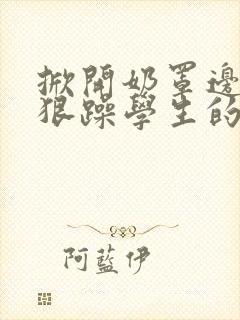 掀開奶罩邊
狠躁學生的
阿藍伊